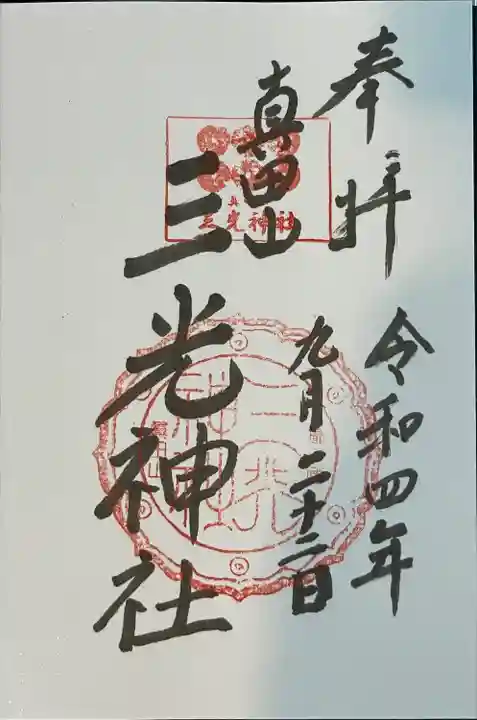 奉拝
令和四年
九月二十二日
真田山
三光神社
三光神社
三光神社